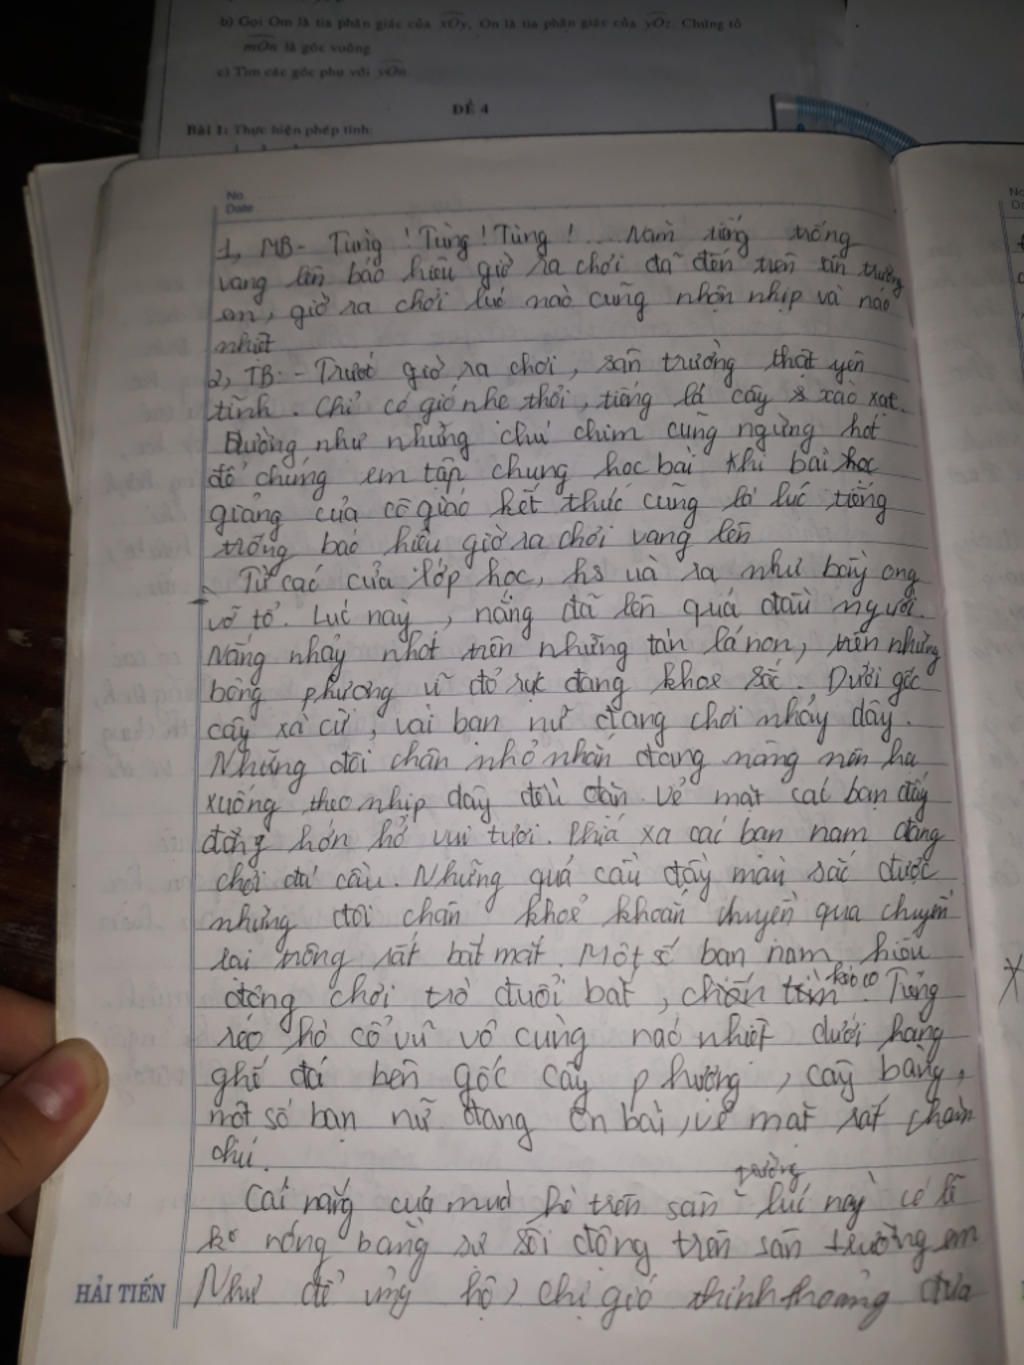 b) Gọi Om là tia phân giác của xOy, On là tia phân giác của yOz. Chứng tỏ
mOn là góc vuông
c) Tìm các góc phụ với yOn
ĐỀ 4
Bài 1: Thực hiện phép tính:
No
Date
1, MB - Tùng ! Tùng ! Tùng ! ... Năm tiếng trống
vang lên báo hiệu giờ ra chơi đã đến trên sân trường
em, giờ ra chơi lúc nào cũng nhộn nhịp và náo
nhiệt
2, TB: - Trước giờ ra chơi, sân trường thật yên
tĩnh. Chỉ có gió nhẹ thổi, tiếng lá cây xào xạt.
Đường như những chú chim cũng ngừng hót
để chúng em tập chung học bài Khi bài học
giảng của cô giáo kết thúc cũng là lúc tiếng
trống báo hiệu giờ ra chơi vang lên
Từ các cửa lớp học, hs ùa ra như bầy ong
vỡ tổ. Lúc này, nắng đã lên quá đầu người.
Nắng nhảy nhót trên những tán lá non, trên những
bông phượng vĩ đỏ rực đang khoe sắc. Dưới gốc
cây xà cừ, vài bạn nữ đang chơi nhảy dây.
Những đôi chân nhỏ nhắn đang nâng nên hạ
xuống theo nhịp dây đều đặn. Vẻ mặt các bạn đấy
đông hớn hở vui tươi. Phía xa các bạn nam đang
chơi đá cầu. Những quả cầu đầy màu sắc được
những đôi chân khoẻ khoắn chuyền qua chuyền
lại trông rất bắt mắt. Một số bạn nam hiếu
động chơi trò đuổi bắt, chốn tìm kéo co. Tiếng
reo hò cổ vũ vô cùng náo nhiệt dưới hàng
ghế đá bên gốc cây phượng, cây bàng,
một số bạn nữ đang ôn bài, vẻ mặt rất chăm
chú.
Cái nắng của mùa hè trên sân trường lúc này có lẽ
ko nóng bằng sự sôi động trên sân trường em
Như để ủng hộ, chị gió thỉnh thoảng đưa
HẢI TIẾN